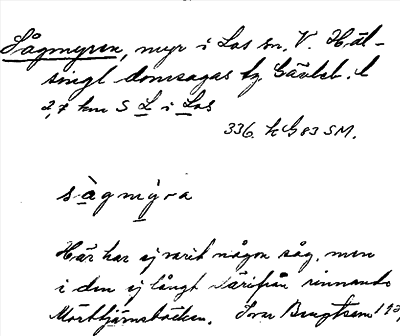 Sågmyren, myr i Los sn. V. Häl-
singl. domsagas tg. Gävleb. l
2,7 km S L i Los
336. h G 83 SM.
sàgmy̱ra
Här har ej varit någon såg, men
i den ej långt därifrån rinnande
Mörttjärnsbäcken. Ivar Bengtsson 193